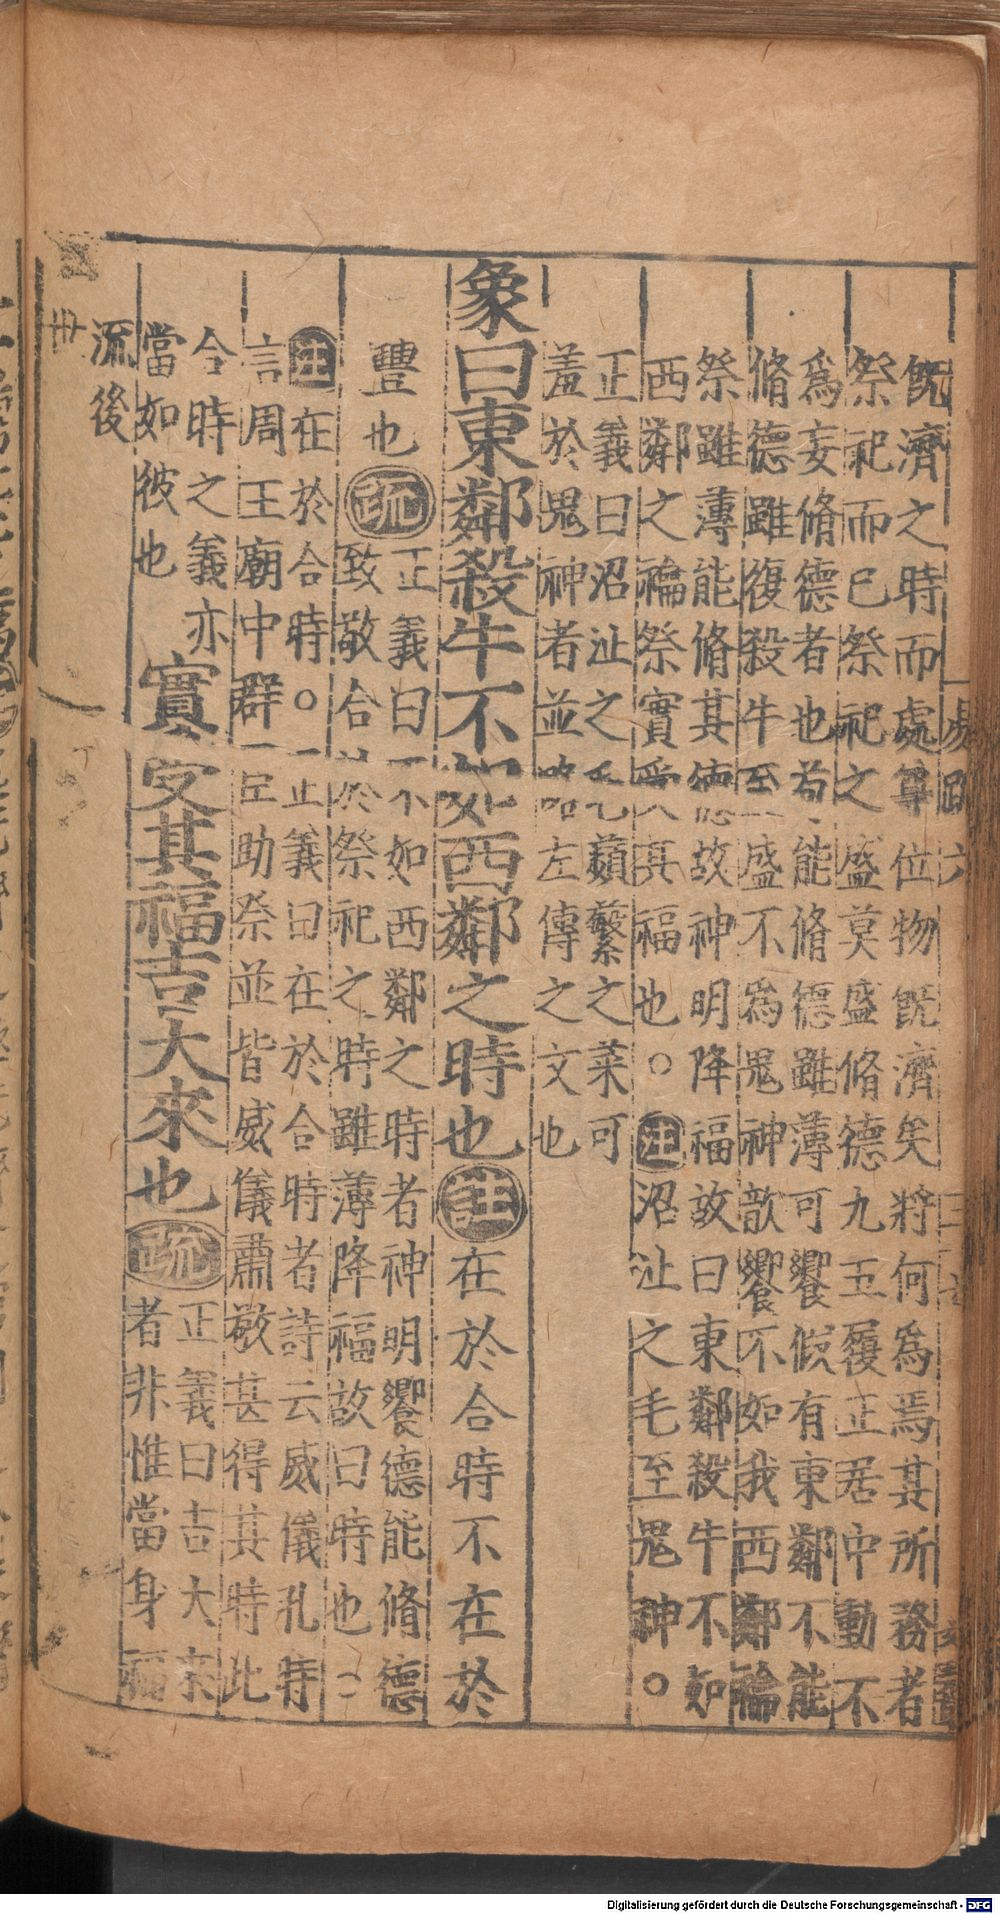 既濟之時而處尊位物既濟矣將何爲焉其所務者
祭祀而已祭祀之盛莫盛脩德九五履正居中動不
爲妄脩德者也苟能脩德雖薄可饗假有東鄰不能
脩德雖復殺牛至盛不爲鬼神歆饗不如我西鄰禴
祭雖薄能脩其德故神明降福故曰東鄰殺牛不如
西鄰之禴祭實受其福也○注沼沚之毛至鬼神○
正義曰沼沚之毛蘋蘩之菜可
羞於鬼神者並略左傳之文也
象曰東鄰殺牛不如西鄰之時也注在於合時不在於
豐也疏
正義曰不如西鄰之時者神明饗德能脩德
致敬合於祭祀之時雖薄降福故曰時也
注在於合時○正義曰在於合時者詩云威儀孔時
言周王廟中群臣助祭並皆威儀肅敬甚得其時此
合時之義亦
當如彼也
實受其福吉大來也疏
正義曰吉大來
者非惟當身福
流後
世
易疏六